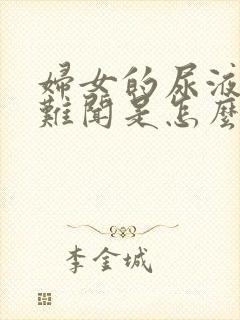 婦女的尿液
難聞是怎麼
李金城